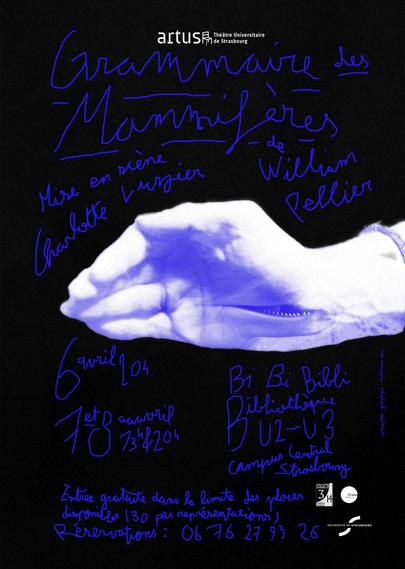 artus Théâtre Universitaire
de Strasbourg
Grammaire des
Mammifères
de
William
Pellier
Mise en scène
Charlotte Luzier
6 avril 20h
7 et 8 avril
13h & 20h
Bi Bi Bibli
Bibliothèque
U2-U3
Campus Central
Strasbourg
Entrée gratuite dans la limite des places
disponible (30 par représentations)
Réservations : 06 76 27 93 26
UNIVERSITÉ DE STRASBOURG